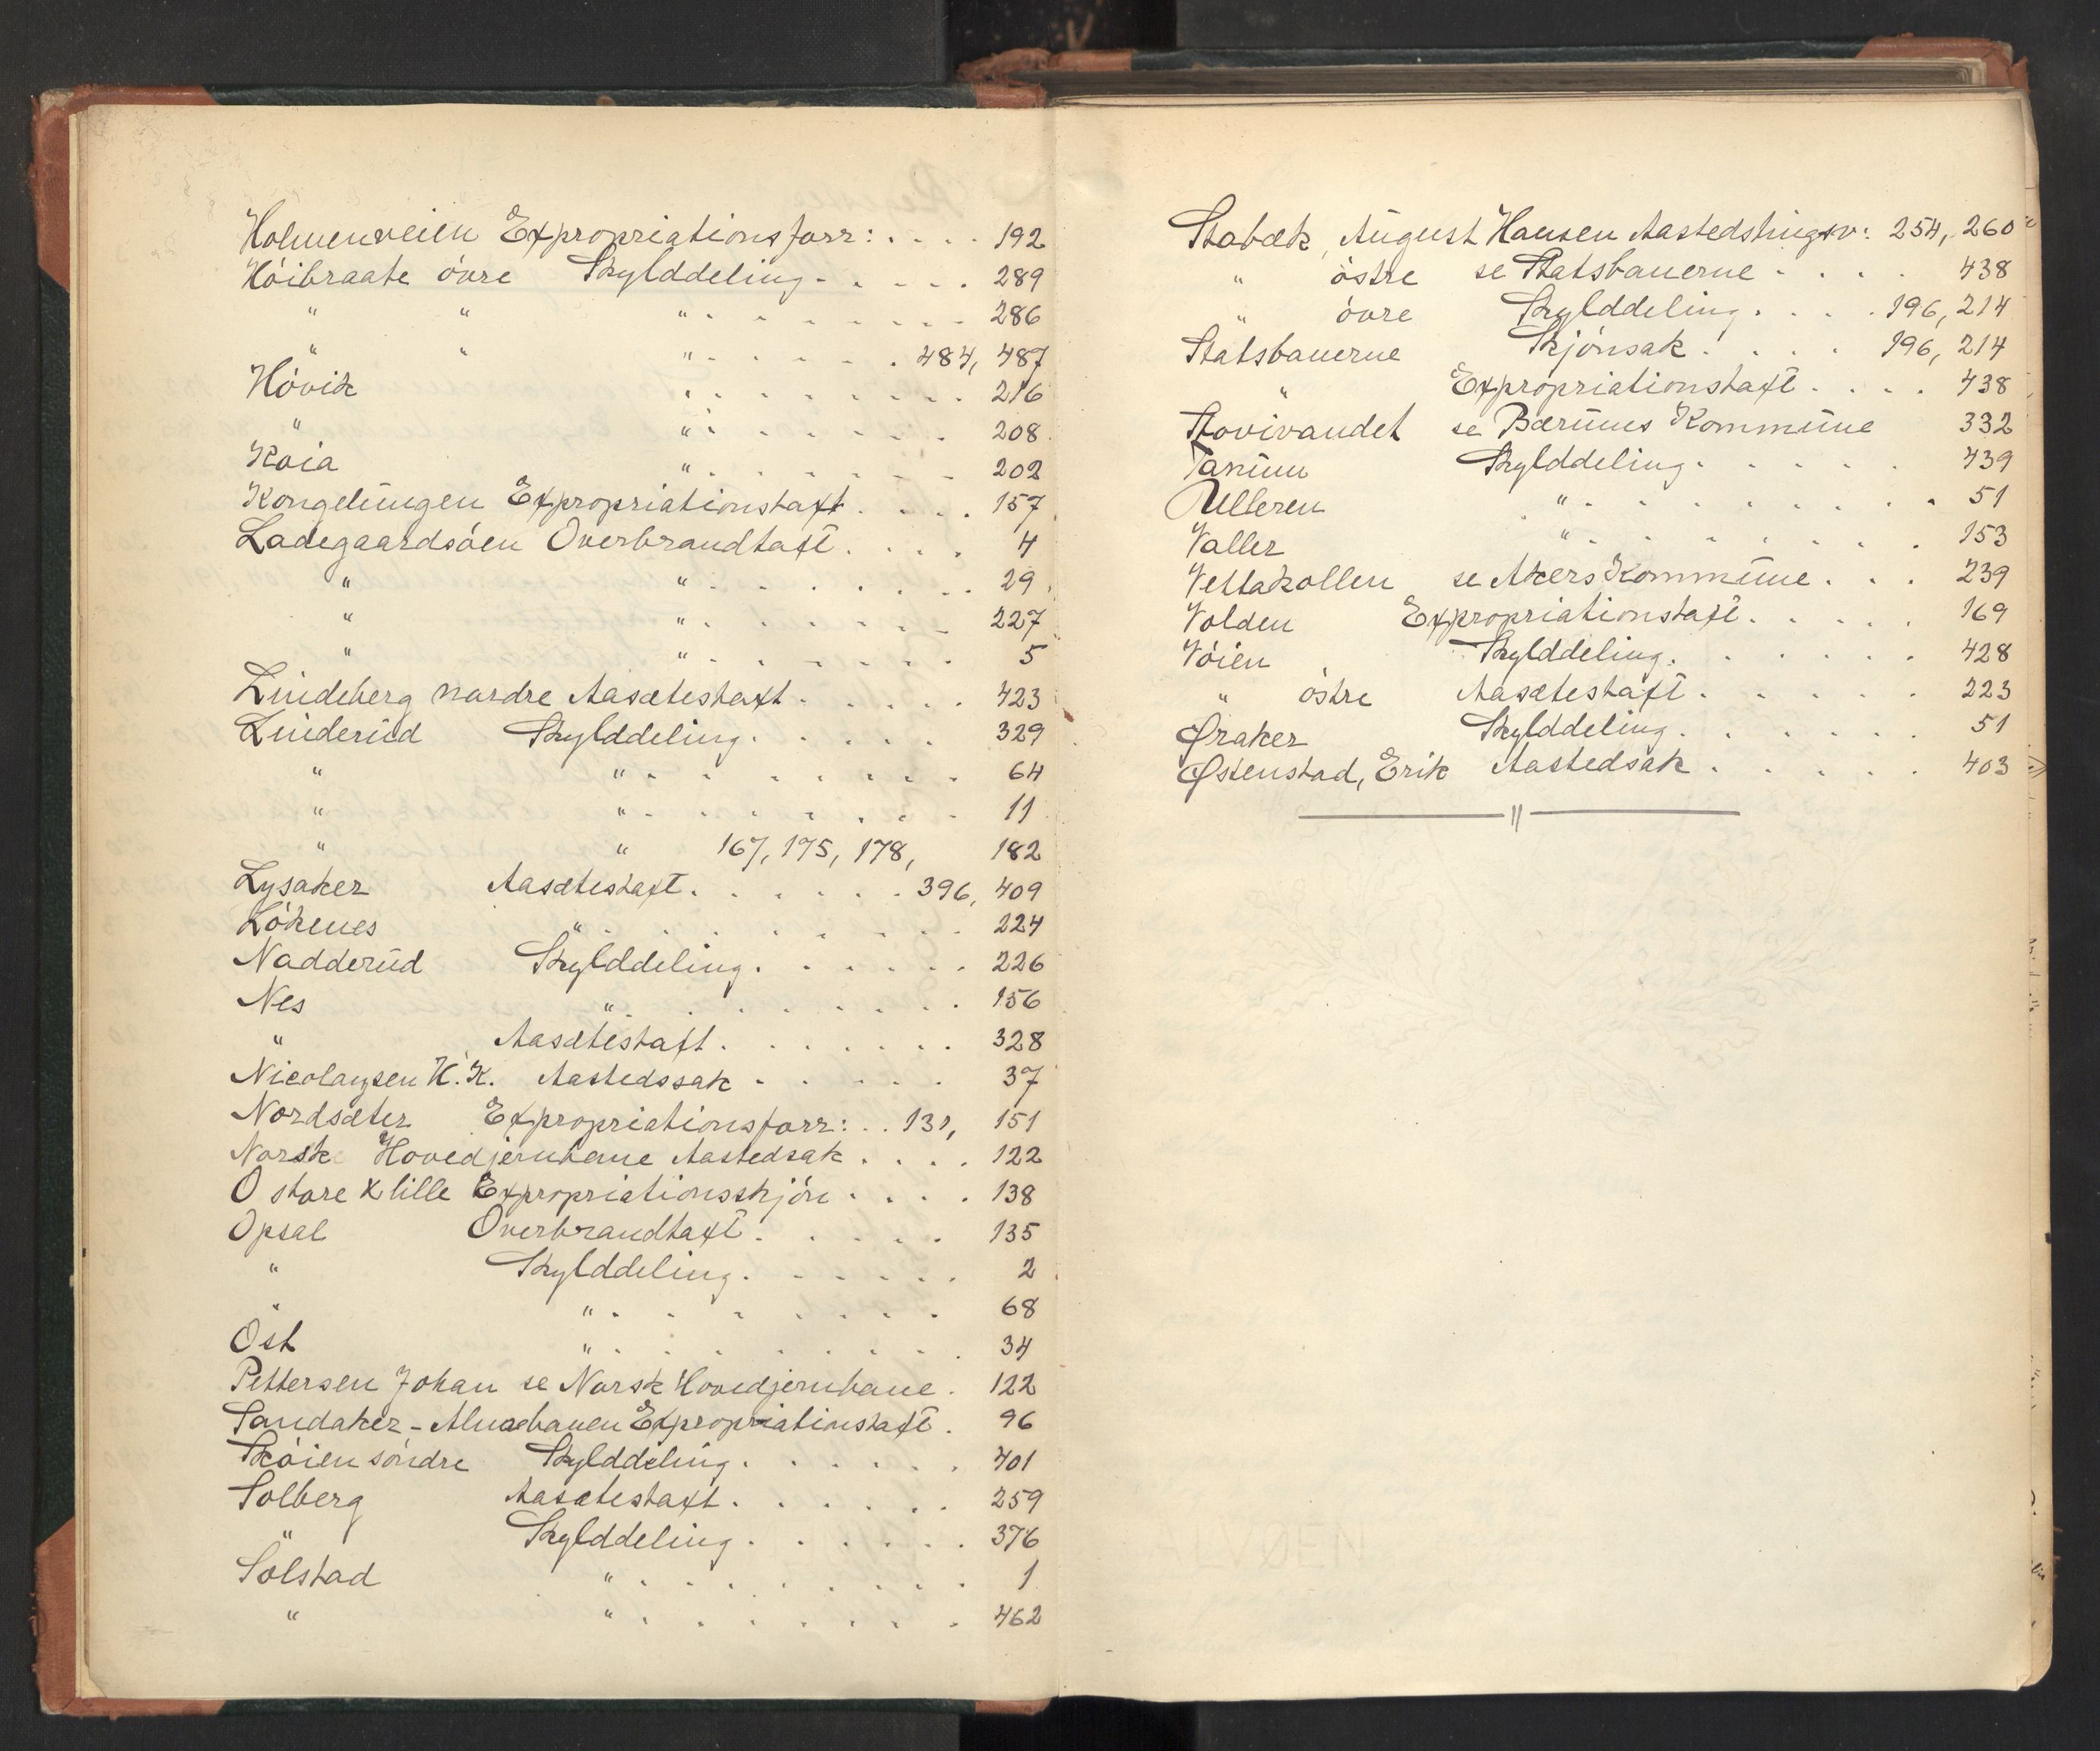 Holmenveien Expropriationsforr: . . . . 192
Höibraate övre Skylddeling . . . . . 289
" " " . . . . . . . 286
" " " . . . . . . 484, 487
Hövik " . . . . . . . 216
" " . . . . . . . 208
Koia " . . . . . . . 202
Kongelungen Expropriationstaxt . . . . 157
Ladegaardsöen Overbrandtaxt . . . . 4
" " . . . . . . . 29
" " . . . . . . . 227
" " . . . . . . . 5
Lindeberg nordre Aasætestaxt . . . . . 423
Linderud Skylddeling . . . . . 329
" " . . . . . . . 64
" " . . . . . . . 11
" " 167, 175, 178, 182
Lysaker Aasætestaxt . . . . . . 396, 409
Lökenes " . . . . . . . 224
Nadderud Skylddeling . . . . . . 226
Nes " . . . . . . . 156
" Aasætestaxt . . . . . . . 328
Nicolaysen K. K. Aastedssak . . . . . 37
Nordsæter Expropriationsforr: . . 131, 151
Norsk Hovedjernbane Aastedsak . . . . 122
O store & lille Expropriationsskjön . . . . 138
Opsal Overbrandtaxt . . . . . 135
" Skylddeling . . . . . . 2
" " . . . . . . . 68
Ost " . . . . . . . 34
Pettersen Johan se Norsk Hovedjernbane . 122
Sandaker - Alnabanen Expropriationstaxt . 96
Sköien söndre Skylddeling . . . . . . 401
Solberg Aasætestaxt . . . . . . 259
" Skylddeling . . . . . . 376
Solstad " . . . . . . . 1
" " . . . . . . . 462
Stabæk, August Hansen Aastedstingsv: 254, 260
" östre se Statsbanerne . . . . 438
" övre Skylddeling . . . . 196, 214
Statsbanerne Skjönsak . . . . 196, 214
" Expropriationstaxt . . . . 438
Stovivandet se Bærums Kommune 332
Tanum Skylddeling . . . . . 439
Ulleren " . . . . . . . . . 51
Valler " . . . . . . . . 153
Vettakollen se Akers Kommune . . . 239
Volden Expropriationstaxt . . . . . 169
Vöien Skylddeling . . . . . . 428
" östre Aasætestaxt . . . . . 223
Øraker Skylddeling . . . . . . 51
Østenstad, Erik Aastedsak . . . . . 403